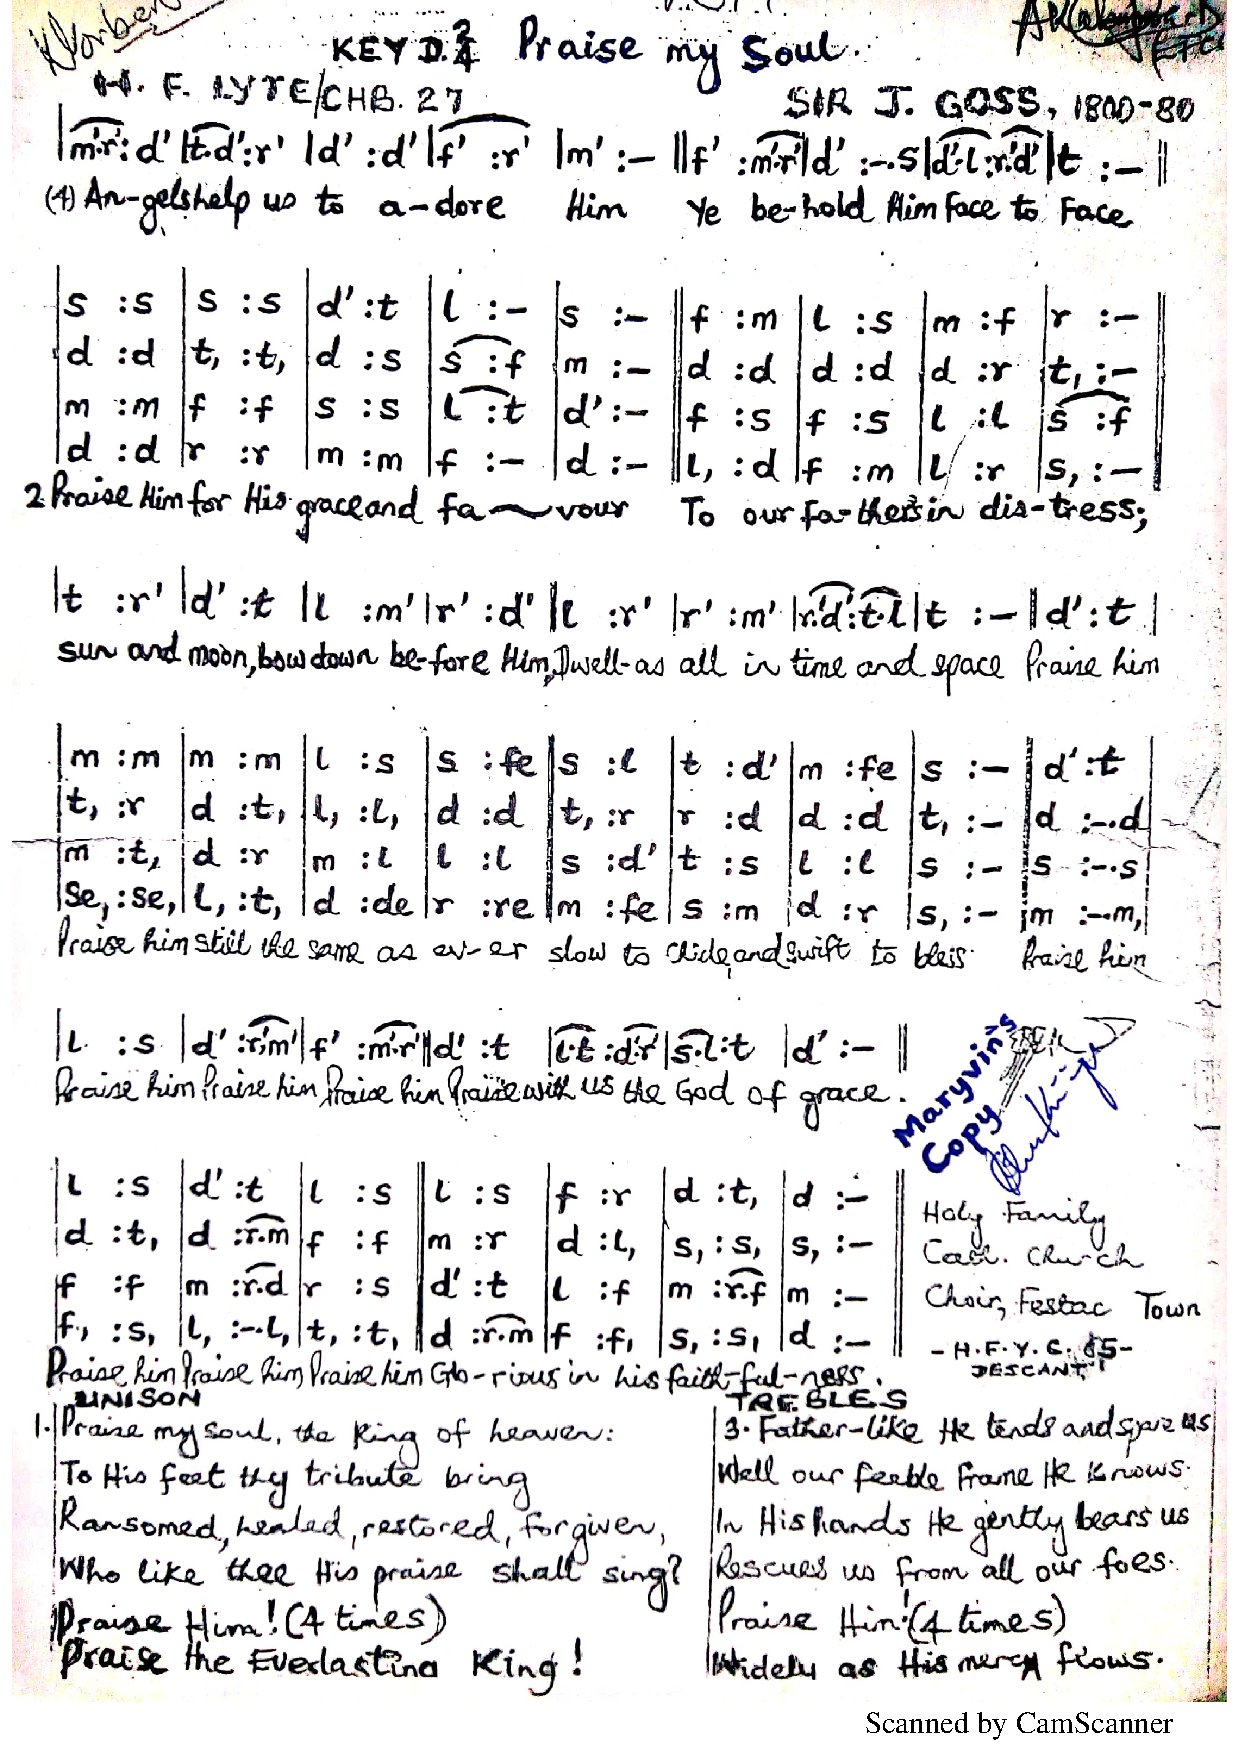 Norbert
KEY D. Praise my Soul.
H. F. LYTE/CHB. 27
SIR J. GOSS, 1800-80
|m'.r':d'|t.d':r'|d':d'|f':r'|m':-||f':m'.r'|d':-.s|d'.l:r'.d'|t:-||
(4) An-gels help us to a-dore Him Ye be-hold Him Face to Face
|s :s|s :s|d' :t|l :-|s :-||f :m|l :s|m :f|r :-||
|d :d|t, :t,|d :s|s :f|m :-||d :d|d :d|d :r|t, :-||
|m :m|f :f|s :s|l :t|d' :-||f :s|f :s|l :l|s :f||
|d :d|r :r|m :m|f :-|d :-||l, :d|f :m|l :r|s, :-||
2 Praise Him for His grace and fa~vour To our fa-thers in dis-tress;
|t :r'|d' :t|l :m'|r' :d'||l :r'|r' :m'|r'.d':t.l|t :-||d' :t|
sun and moon, bow down be-fore Him, Dwell-as all in time and space Praise him
|m :m|m :m|l :s|s :fe||s :l|t :d'|m :fe|s :-||d' :t|
|t, :r|d :t,|l, :l,|d :d||t, :r|r :d|d :d|t, :-||d :-.d|
|m :t,|d :r|m :l|l :l||s :d'|t :s|l :l|s :-||s :-.s|
|se, :se,|l, :t,|d :de|r :re||m :fe|s :m|d :r|s, :-||m :-.m,|
Praise him still the same as ev-er slow to chide, and swift to bless Praise him
|l :s|d' :r'.m'|f' :m'.r'||d' :t|l.t:d'.r'|s.l:t|d' :-||
Praise him Praise him Praise him Praise with us the God of grace.
Maryvin's
Copy
|l :s|d' :t|l :s||l :s|f :r|d :t,|d :-||
|d :t,|d :r.m|f :f||m :r|d :l,|s, :s,|s, :-||
|f :f|m :r.d|r :s||d' :t|l :f|m :r.f|m :-||
|f, :s,|l, :-.l,|t, :t,||d :r.m|f :f,|s, :s,|d :-||
Holy Family
Cath. Church
Choir, Festac Town
-H.F.Y.C. 85-
Praise him Praise him Praise him Glo-rious in his faith-ful-ness.
DESCANT
UNISON
1. Praise my soul, the King of heaven:
To His feet thy tribute bring
Ransomed, healed, restored, forgiven,
Who like thee His praise shall sing?
Praise Him! (4 times)
Praise the Everlasting King!
TREBLES
3. Father-like He tends and spare us
Well our feeble frame He knows.
In His hands He gently bears us
Rescues us from all our foes.
Praise Him! (4 times)
Widely as His mercy flows.
Scanned by CamScanner